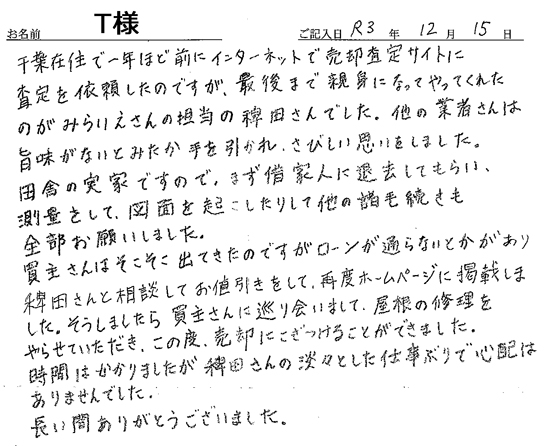 お名前 T様 ご記入日 R3 年 12 月 15 日
千葉在住で一年ほど前にインターネットで売却査定サイトに
査定を依頼したのですが、最後まで親身になってやってくれた
のがみらいえさんの担当の稗田さんでした。他の業者さんは
旨味がないとみたか手を引かれ、さびしい思いをしました。
田舎の実家ですので、まず借家人に退去してもらい、
測量をして、図面を起こしたりして他の諸手続きも
全部お願いしました。
買主さんはそこそこ出てきたのですがローンが通らないとかがあり
稗田さんと相談してお値引きをして、再度ホームページに掲載しま
した。そうしましたら買主さんに巡り会いまして、屋根の修理を
やらせていただき、この度、売却にこぎつけることができました。
時間はかかりましたが稗田さんの淡々とした仕事ぶりで心配は
ありませんでした。
長い間ありがとうございました。